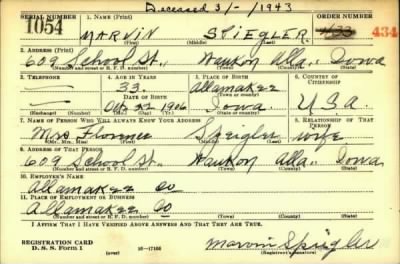 Deceased 3/-/1943
SERIAL NUMBER 1. NAME (Print) ORDER NUMBER
1054 MARVIN STIEGLER 434
(First) (Middle) (Last)
2. ADDRESS (Print)
609 School St., Waukon Alla., Iowa
(Number and street or R. F. D. number) (Town) (County) (State)
3. TELEPHONE 4. AGE IN YEARS 5. PLACE OF BIRTH 6. COUNTRY OF CITIZENSHIP
33 Allamakee
DATE OF BIRTH (Town or county)
Oct 22 1906 Iowa U S A
(Exchange) (No.) (Mo.) (Day) (Yr.) (State or country)
7. NAME OF PERSON WHO WILL ALWAYS KNOW YOUR ADDRESS 8. RELATIONSHIP OF THAT PERSON
Mrs Florence Speigler wife
(Mr., Mrs., Miss) (First) (Middle) (Last)
9. ADDRESS OF THAT PERSON
609 School St., Waukon Alla., Iowa
(Number and street or R. F. D. number) (Town) (County) (State)
10. EMPLOYER'S NAME
Allamakee Co
11. PLACE OF EMPLOYMENT OR BUSINESS
Allamakee Co
(Number and street or R. F. D. number) (Town) (County) (State)
I AFFIRM THAT I HAVE VERIFIED ABOVE ANSWERS AND THAT THEY ARE TRUE.
REGISTRATION CARD
D. S. S. Form 1 (over) 16—17105 Marvin Speigler
(Registrant's signature)